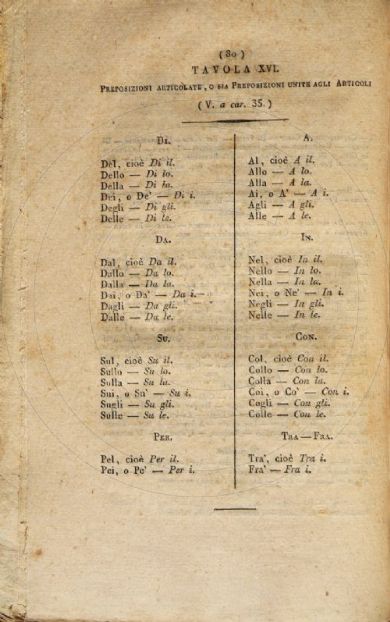 (80)
TAVOLA XVI.
PREPOSIZIONI ARTICOLATE, O SIA PREPOSIZIONI UNITE AGLI ARTICOLI
(V. a car. 35.)
DI.
Del, cioè Di il.
Dello — Di lo.
Della — Di la.
Dei, o De' — Di i.
Degli — Di gli.
Delle — Di le.
DA.
Dal, cioè Da il.
Dallo — Da lo.
Dalla — Da la.
Dai, o Da' — Da i.
Dagli — Da gli.
Dalle — Da le.
SU.
Sul, cioè Su il.
Sullo — Su lo.
Sulla — Su la.
Sui, o Su' — Su i.
Sugli — Su gli.
Sulle — Su le.
PER.
Pel, cioè Per il.
Pei, o Pe' — Per i.
A.
Al, cioè A il.
Allo — A lo.
Alla — A la.
Ai, o A' — A i.
Agli — A gli.
Alle — A le.
IN.
Nel, cioè In il.
Nello — In lo.
Nella — In la.
Nei, o Ne' — In i.
Negli — In gli.
Nelle — In le.
CON.
Col, cioè Con il.
Collo — Con lo.
Colla — Con la.
Coi, o Co' — Con i.
Cogli — Con gli.
Colle — Con le.
TRA — FRA.
Tra', cioè Tra i.
Fra' — Fra i.